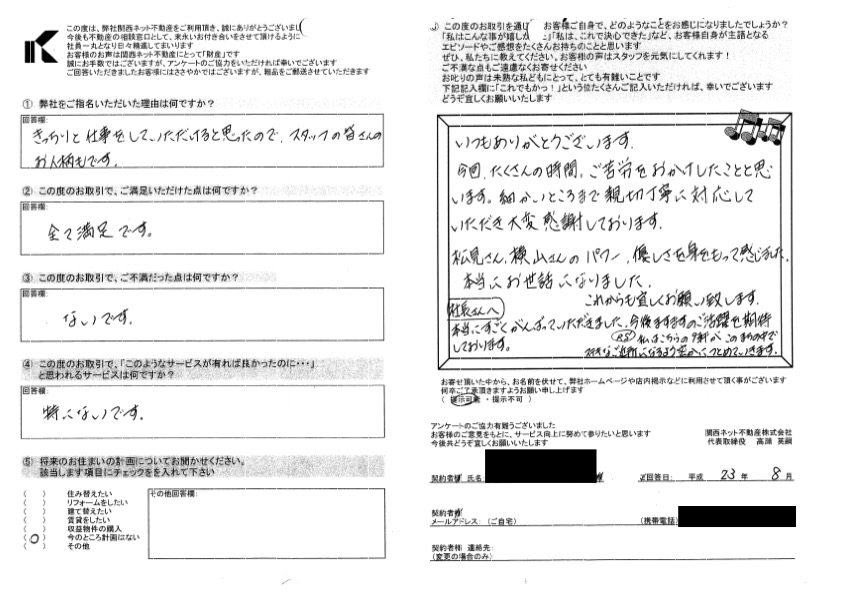 この度は、弊社関西ネット不動産をご利用頂き、誠にありがとうございまし
今後も不動産の相談窓口として、末永いお付き合いをさせて頂けるように
社員一丸となり日々精進してまいります
お客様のお声は関西ネット不動産にとって「財産」です
誠にお手数ではございますが、アンケートのご協力をいただければ幸いでございます
ご回答いただきましたお客様にはささやかではございますが、粗品をご郵送させていただきます
① 弊社をご指名いただいた理由は何ですか？
回答欄:
きっちりと仕事をしていただけると思ったので、スタッフの皆さんの
お人柄もです。
② この度のお取引で、ご満足いただけた点は何ですか？
回答欄:
全て満足です。
③ この度のお取引で、ご不満だった点は何ですか？
回答欄:
ないです。
④ この度のお取引で、「このようなサービスが有れば良かったのに・・・」
と思われるサービスは何ですか？
回答欄:
特にないです。
⑤ 将来のお住まいの計画についてお聞かせください。
該当します項目にチェックをを入れて下さい
( ) 住み替えたい
( ) リフォームをしたい
( ) 建て替えたい
( ) 賃貸をしたい
( ) 収益物件の購入
(○) 今のところ計画はない
( ) その他
その他回答欄:
この度のお取引を通し お客様ご自身で、どのようなことをお感じになりましたでしょうか？
「私はこんな事が嬉し 「私は、これで決心できた」など、お客様自身が主語となる
エピソードやご感想をたくさんお持ちのことと思います
ぜひ、私たちに教えてください。お客様の声はスタッフを元気にしてくれます！
ご不満な点もご遠慮なくお寄せください
お叱りの声は未熟な私どもにとって、とても有難いことです
下記記入欄に「これでもかっ！」という位たくさんご記入いただければ、幸いでございます
どうぞ宜しくお願いいたします
いつもありがとうございます。
今回、たくさんの時間、ご苦労をおかけしたことと思
います。細かいところまで親切丁寧に対応して
いただき大変感謝しております。
松見さん、横山さんのパワー、優しさを身をもって感じました。
本当にお世話になりました。
これからも宜しくお願い致します。
社長さんへ
本当にすごくがんばっていただきました。今後ますますのご活躍を期待
しております。
私はこちらの
お寄せ頂いた中から、お名前を伏せて、弊社ホームページや店内掲示などに利用させて頂く事がございます
何卒ご了承頂きますようお願い申し上げます
( 掲示可能 ・ 掲示不可 )
アンケートのご協力有難うございました
お客様のご意見をもとに、サービス向上に努めて参りたいと思います
今後共どうぞ宜しくお願いいたします
関西ネット不動産株式会社
代表取締役 高瀬 英嗣
契約者様 氏名 ご回答日: 平成 23 年 8 月
契約者様
メールアドレス: (ご自宅) (携帯電話)
契約者様 連絡先:
(変更の場合のみ)